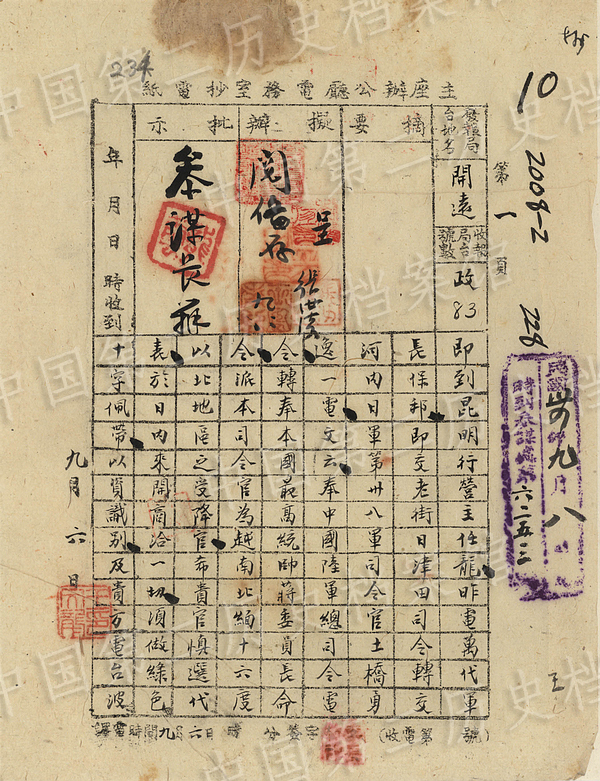 10
2008-2
228
234
主座辦公廳電務室抄電紙
第一頁
發報局台地名
開遠
收報局台號數
政83
摘要
擬辦
批示
呈
閱
參謀長
年月日時收到
即到昆明行營主任龍昨電萬代軍
長保邦即交老街日津田司令轉交
河內日軍第卅八軍司令官土橋勇
逸一電文云奉中國陸軍總司令電
令轉奉本國最高統帥蔣委員長命
令派本司令官為越南北緯十六度
以北地區之受降官希貴官慎選代
表於日內來開商洽一切須做綠色
十字佩帶以資識別及貴方電台波
九月六日
九月八
六二五三
(收電第 號)
譯電時間九月六日 時 分 簽字
中国第二历史档案馆